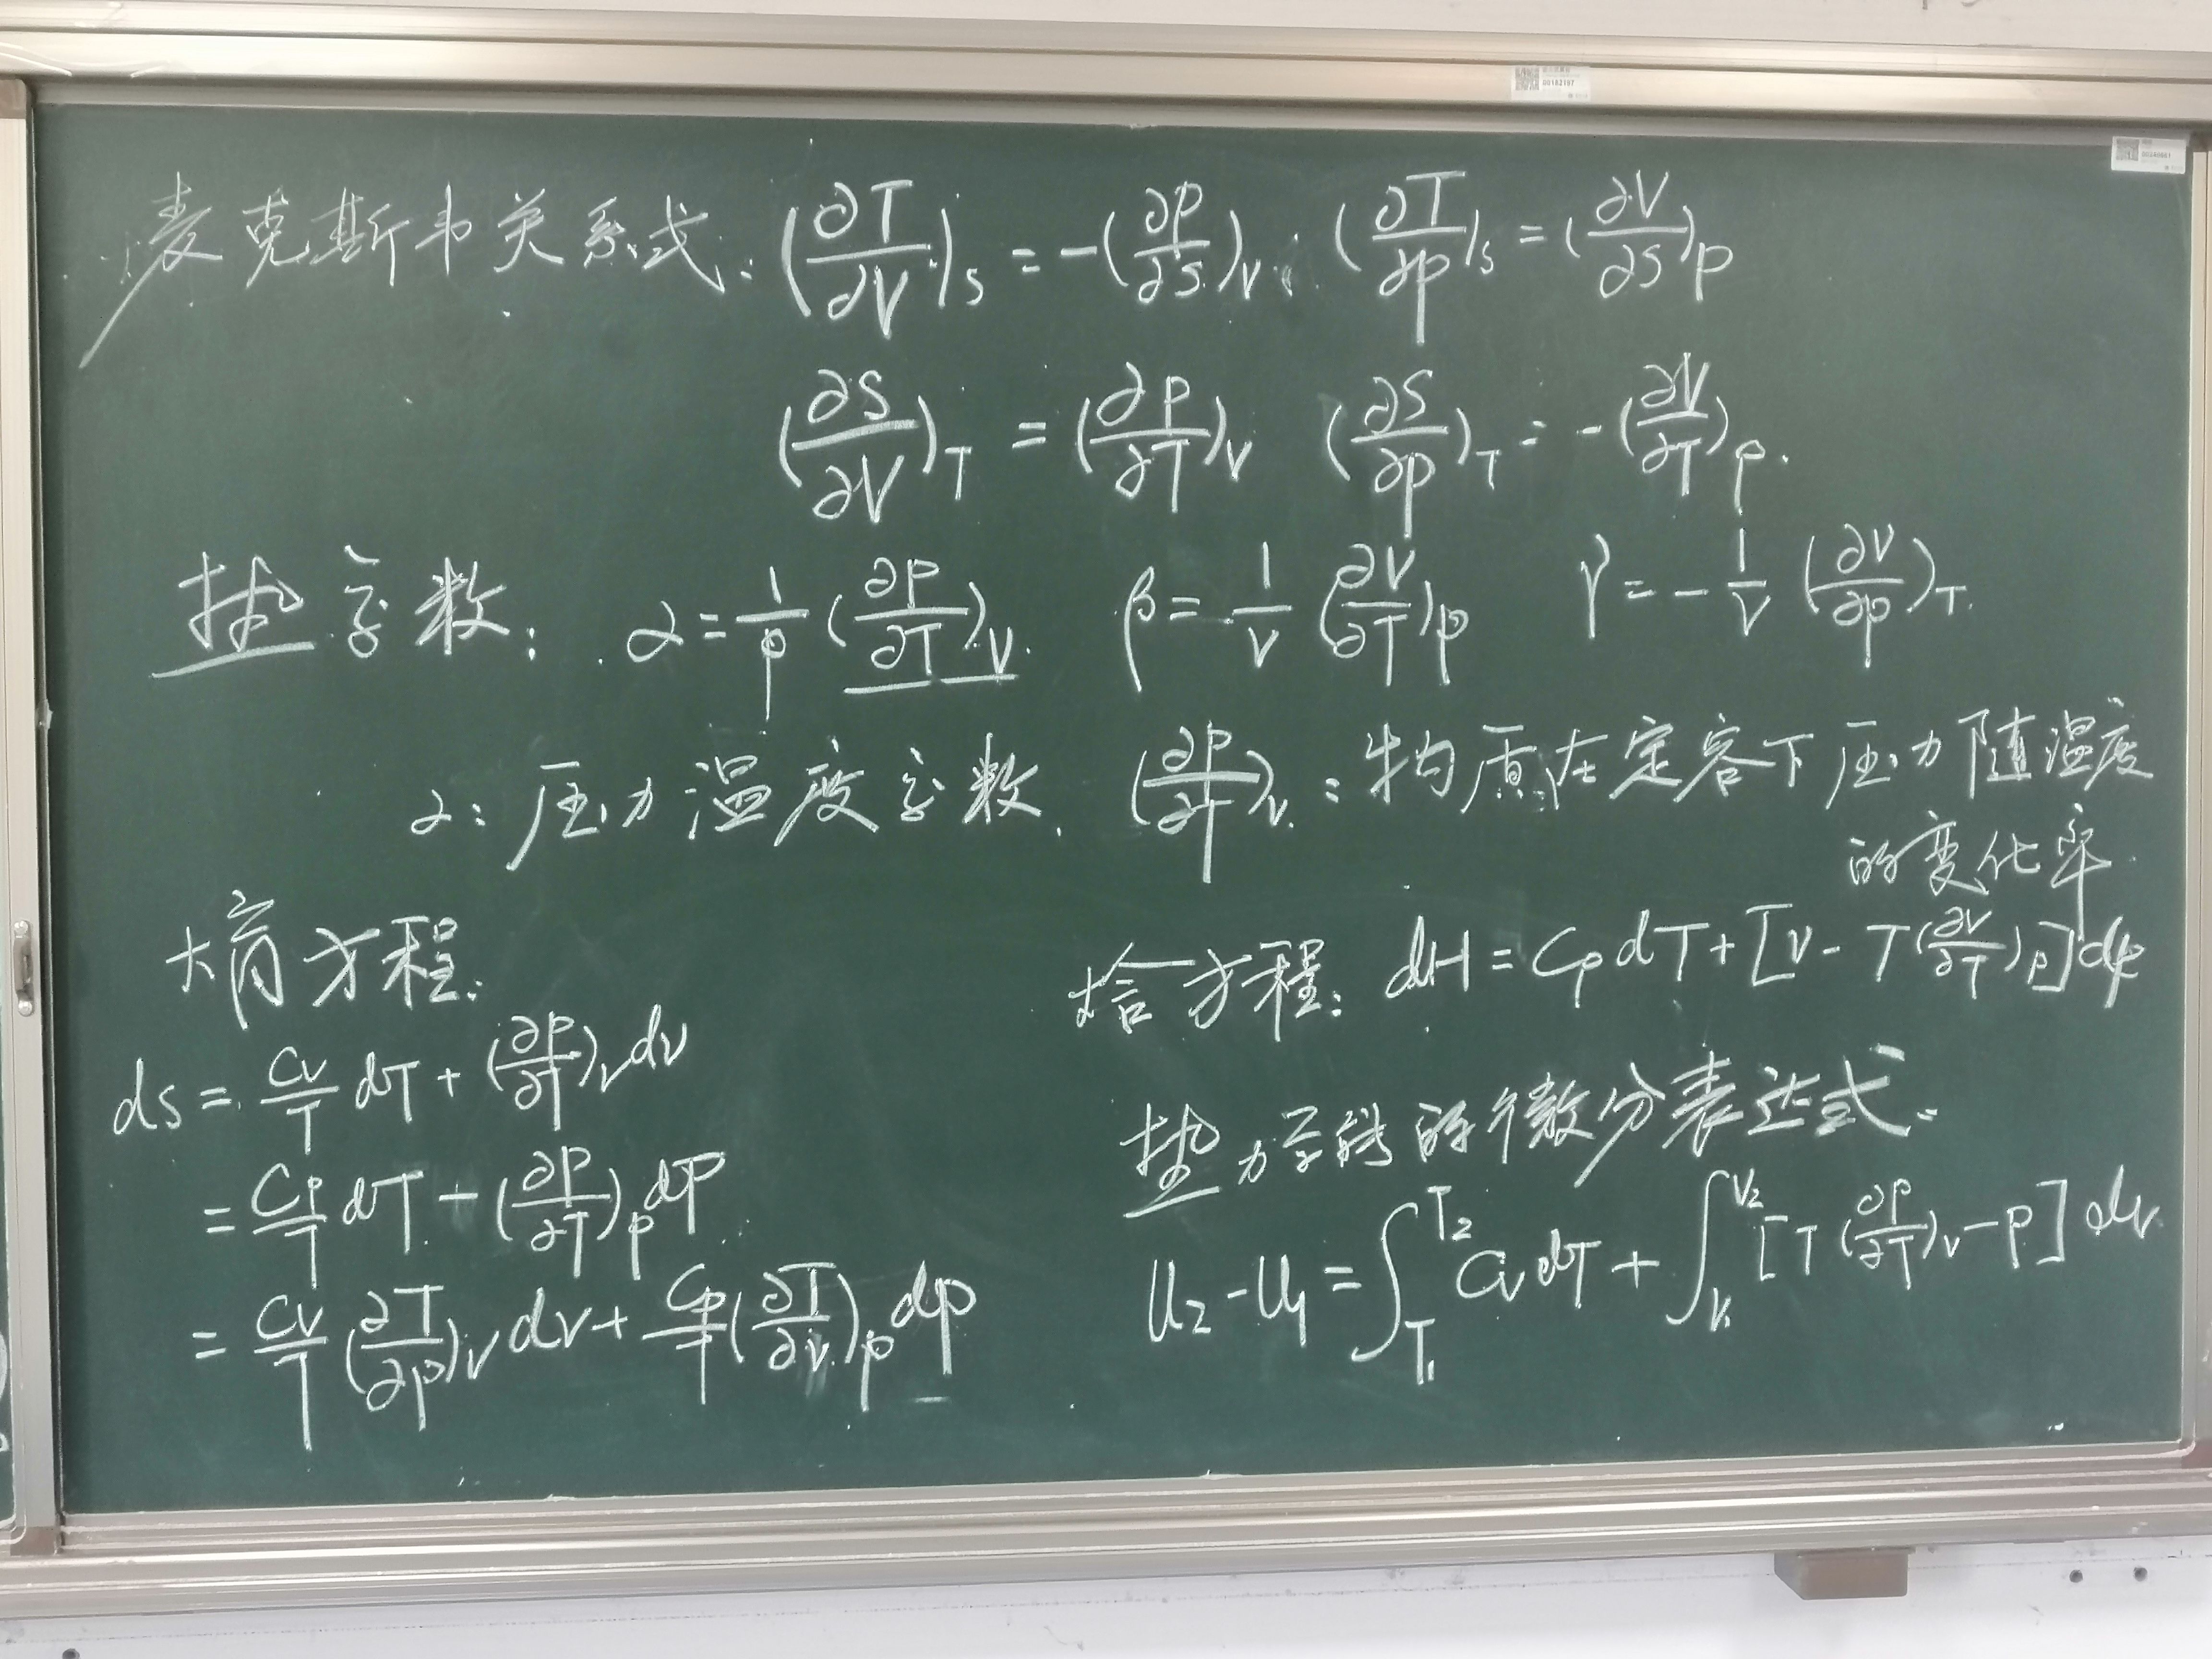 麦克斯韦关系式: (∂T/∂V)_S = -(∂P/∂S)_V; (∂T/∂p)_S = (∂V/∂S)_P
(∂S/∂V)_T = (∂P/∂T)_V (∂S/∂p)_T = -(∂V/∂T)_P.
热系数: α = 1/p (∂P/∂T)_V β = 1/V (∂V/∂T)_P γ = -1/V (∂V/∂p)_T
α: 压力温度系数. (∂P/∂T)_V: 物质在定容下压力随温度
的变化率.
熵方程:
ds = Cv/T dT + (∂P/∂T)_V dv
= Cp/T dT - (∂P/∂T)_P dP
= Cv/T (∂T/∂p)_V dv + Cp/T (∂T/∂v)_P dp
焓方程: dH = Cp dT + [V - T(∂V/∂T)_P] dp
热力学能的微分表达式:
U2 - U1 = ∫_{T1}^{T2} Cv dT + ∫_{V1}^{V2} [T(∂P/∂T)_V - P] dv